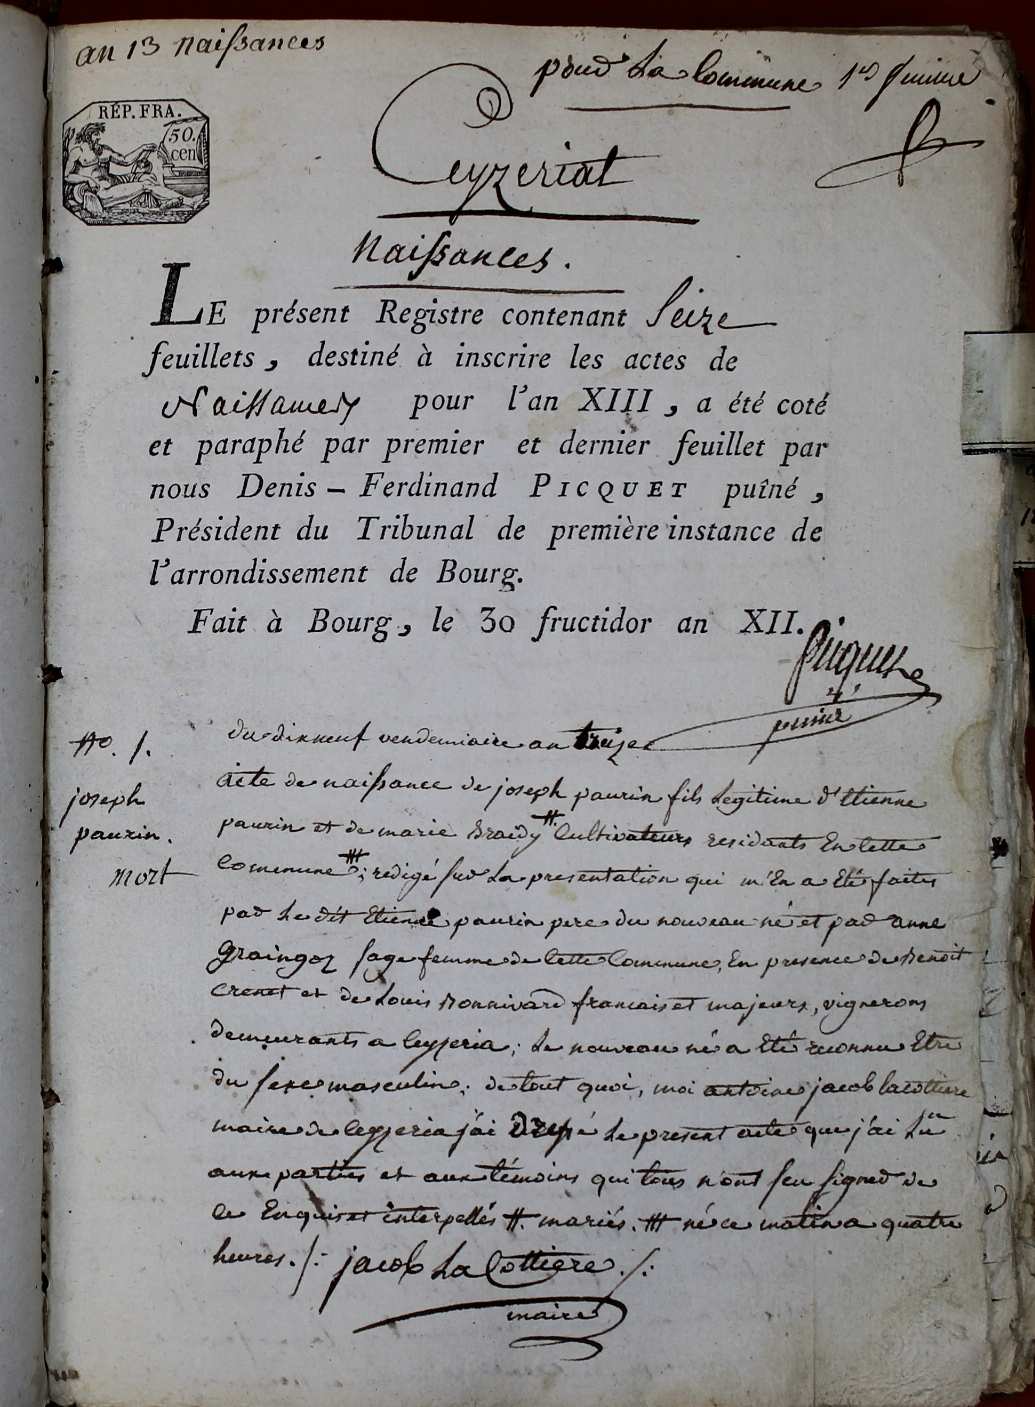 an 13 naissances
pour la Commune 1er feuillet
RÉP. FRA.
50.
cen
Ceyzeriat
Naissances.
LE présent Registre contenant Seize
feuillets, destiné à inscrire les actes de
Naissances pour l'an XIII, a été coté
et paraphé par premier et dernier feuillet par
nous Denis – Ferdinand PICQUET puîné,
Président du Tribunal de première instance de
l'arrondissement de Bourg.
Fait à Bourg, le 30 fructidor an XII.
Picquet
puiné
No. 1.
joseph
paurin.
mort
du dixneuf vendemiaire an treize
acte de naissance de joseph paurin fils legitime d'Etienne
paurin et de marie #. Cultivateurs residants En cette
Commune ##; redigé sur la presentation qui m'En a Eté faites
par le dit Etienne paurin pere du nouveau né et par anne
graingoz sage femme de Cette Commune, En presence de Benoit
Crenet et de Louis Bonnivard francais et majeurs, vignerons
demeurants a Ceyzeria; le nouveau né a Eté reconnu Etre
du sexe masculin; de tout quoi, moi antoine jacob lacottiere
maire de Ceyzeria j'ai Dressé le present acte que j'ai Lu
aux parties et aux témoins qui tous n'ont seu signer de
ce Enquis et interpellés #. mariés. ## né ce matin a quatre
heures. /: jacob La Cottiere /:
maire